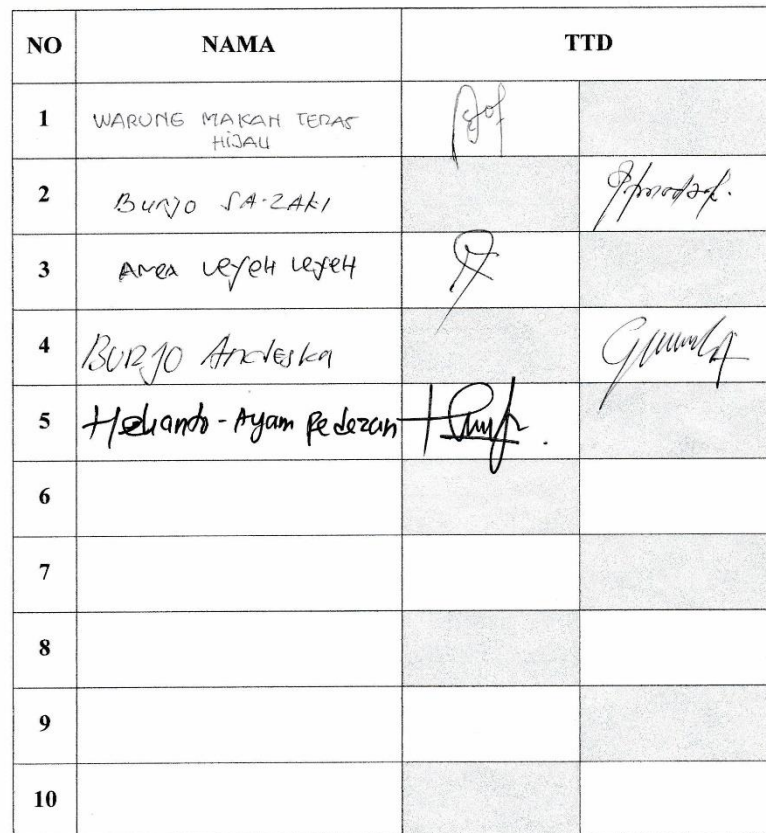 NO NAMA TTD
1 WARUNG MAKAN TERAS
HIJAU
2 Burjo SA-ZAKI
3 Area LeyeH LeyeH
4 BURJO Andeska
5 Heliando - Ayam Pedezan
6
7
8
9
10